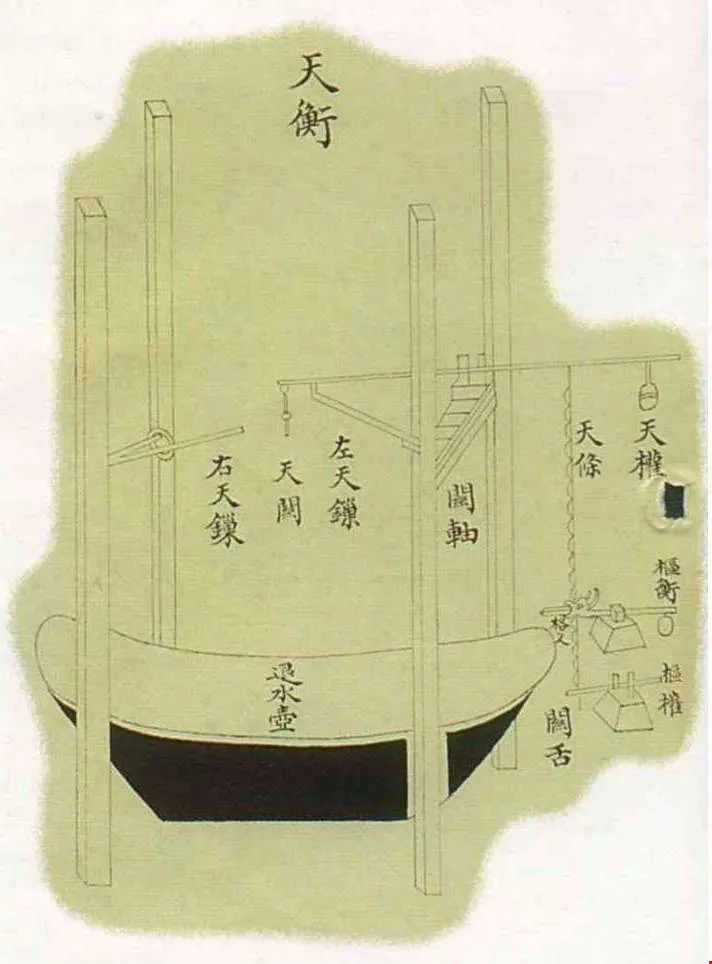 天衡
天權
天條
關軸
左天鏁
天關
右天鏁
樞衡
格叉
樞權
關舌
退水壺